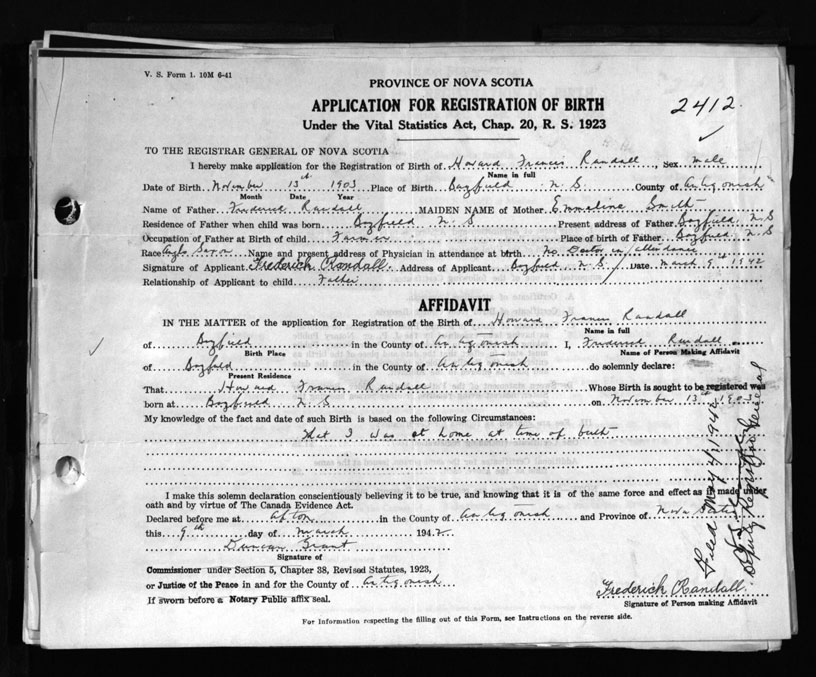 V. S. Form 1. 10M 6-41
PROVINCE OF NOVA SCOTIA
APPLICATION FOR REGISTRATION OF BIRTH
2412.
Under the Vital Statistics Act, Chap. 20, R. S. 1923
TO THE REGISTRAR GENERAL OF NOVA SCOTIA
I hereby make application for the Registration of Birth of Howard Francis Randall, Sex male
Name in full
Date of Birth November 13th 1903 Place of Birth Bayfield N.S County of Antigonish
Month Date Year
Name of Father Frederick Randall MAIDEN NAME of Mother Emmaline Smith
Residence of Father when child was born Bayfield N.S Present address of Father Bayfield, N.S
Occupation of Father at Birth of child Farmer Place of birth of Father Bayfield, N.S
Race Anglo Saxon Name and present address of Physician in attendance at birth No Doctor in attendance
Signature of Applicant Frederick Randall. Address of Applicant Bayfield N.S. Date March 9th 1942
Relationship of Applicant to child Father
AFFIDAVIT
IN THE MATTER of the application for Registration of the Birth of Howard Francis Randall
Name in full
of Bayfield in the County of Antigonish I, Frederick Randall
Birth Place Name of Person Making Affidavit
of Bayfield in the County of Antigonish do solemnly declare:
Present Residence
That Howard Francis Randall Whose Birth is sought to be registered was
born at Bayfield N.S on November 13th 1903
My knowledge of the fact and date of such Birth is based on the following Circumstances:
that I was at home at time of birth
I make this solemn declaration conscientiously believing it to be true, and knowing that it is of the same force and effect as if made under
oath and by virtue of The Canada Evidence Act.
Declared before me at Afton in the County of Antigonish and Province of Nova Scotia
this 9th day of March 1942.
Duncan Grant
Signature of
Commissioner under Section 5, Chapter 38, Revised Statutes, 1923,
or Justice of the Peace in and for the County of Antigonish
If sworn before a Notary Public affix seal.
Frederick Randall.
Signature of Person making Affidavit
For Information respecting the filling out of this Form, see Instructions on the reverse side.
Filed May 4/1942
Deputy Registrar General